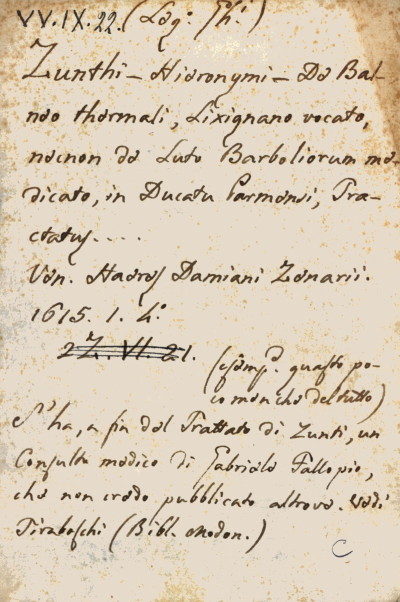 VV.IX.22. (Leg.º Ph.i)
Zunthi - Hieronymi - De Bal-
neo thermali, Lixignano vocato,
necnon de Luto Barboliorum me-
dicato, in Ducatu Parmensi, Tra-
ctatus....
Ven. Haeres Damiani Zenarii.
1615. 1. 4.º
2Z.VI.21.
(esemp.e guasto po-
co men che del tutto)
S'ha, a fin del Trattato di Zunti, un
Consulto medico di Gabriele Fallopio,
che non credo pubblicato altrove. Vedi
Tiraboschi (Bibl. Moden.)
C